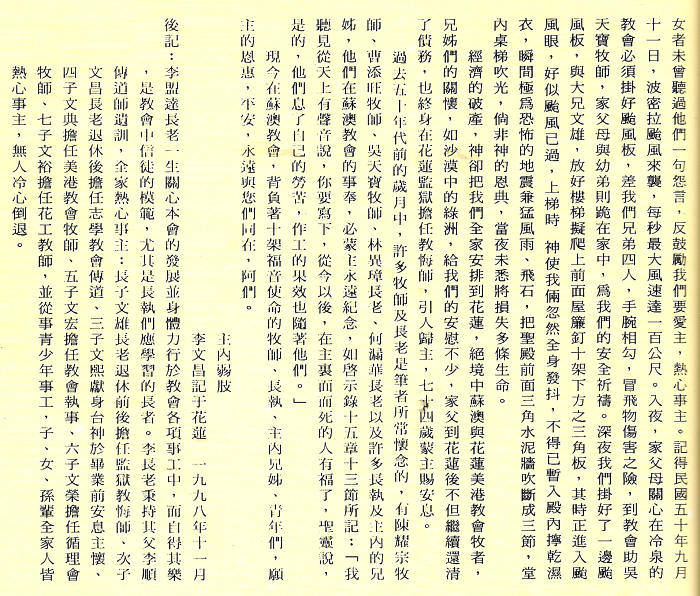 女者未曾聽過他們一句怨言，反鼓勵我們要愛主，熱心事主。記得民國五十年九月
十一日，波密拉颱風來襲，每秒最大風速達一百公尺。入夜，家父母關心在冷泉的
教會必須掛好颱風板，差我們兄弟四人，手腕相勾，冒飛物傷害之險，到教會助吳
天寶牧師，家父母與幼弟則跪在家中，為我們的安全祈禱。深夜我們掛好了一邊颱
風板，與大兄文雄，放好樓梯擬爬上前面屋簷釘十架下方之三角板，其時正進入颱
風眼，好似颱風已過，上梯時 神使我倆忽然全身發抖，不得已暫入殿內擰乾濕
衣，瞬間極為恐怖的地震兼猛風雨、飛石，把聖殿前面三角水泥牆吹斷成三節，堂
內桌椅吹光，倘非神的恩典，當夜未悉將損失多條生命。
經濟的破產，神卻把我們全家安排到花蓮，絕境中蘇澳與花蓮美港教會牧者，
兄姊們的關懷，如沙漠中的綠洲，給我們的安慰不少，家父到花蓮後不但繼續還清
了債務，也終身在花蓮監獄擔任教悔師，引人歸主，七十四歲蒙主賜安息。
過去五十年代前的歲月中，許多牧師及長老是筆者所常懷念的，有陳耀宗牧
師、曹添旺牧師、吳天寶牧師、林異璋長老、何漏華長老以及許多長執及主內的兄
姊，他們在蘇澳教會的事奉，必蒙主永遠紀念，如啓示錄十五章十三節所記：「我
聽見從天上有聲音說，你要寫下，從今以後，在主裏面而死的人有福了，聖靈說，
是的，他們息了自己的勞苦，作工的果效也隨著他們。」
現今在蘇澳教會，背負著十架福音使命的牧師、長執、主內兄姊、青年們，願
主的恩惠，平安，永遠與您們同在，阿們。
主內弱肢
李文昌記于花蓮 一九九八年十一月
後記：李盟達長老一生關心本會的發展並身體力行於教會各項事工中，而自得其樂
，是教會中信徒的模範，尤其是長執們應學習的長者。李長老秉持其父李順
傳道師遺訓，全家熱心事主：長子文雄長老退休前後擔任監獄教悔師、次子
文昌長老退休後擔任志學教會傳道、三子文熙獻身台神於畢業前安息主懷、
四子文典擔任美港教會牧師、五子文宏擔任教會執事、六子文榮擔任循理會
牧師、七子文裕擔任花工教師，並從事青少年事工，子、女、孫輩全家人皆
熱心事主，無人冷心倒退。